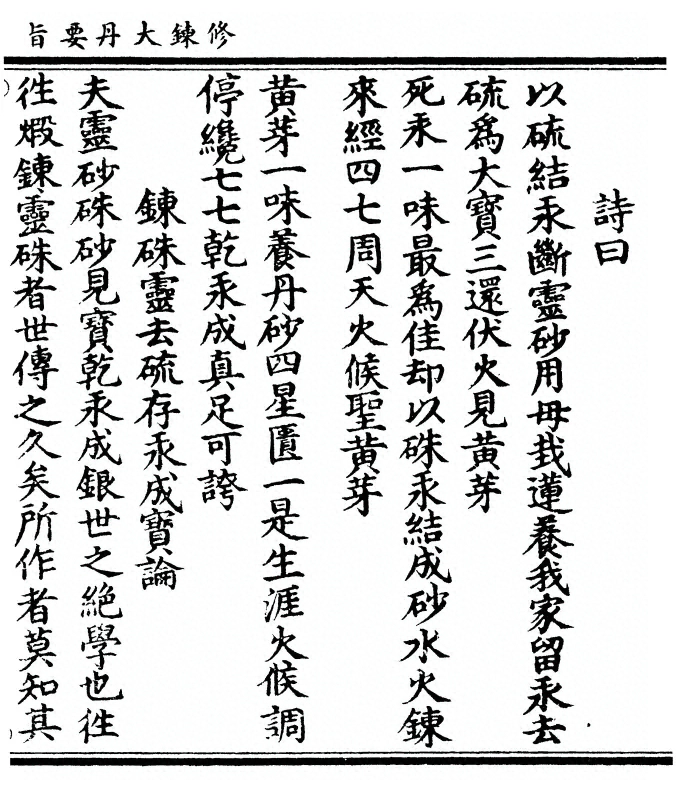 修鍊大丹要旨
詩曰
以硫結汞斷靈砂用母㘽蓮養我家留汞去
硫為大寶三還伏火見黃芽
死汞一味最為佳却以硃汞結成砂水火鍊
來經四七周天火候聖黃芽
黃芽一味養丹砂四星匱一是生涯火候調
停纔七七乾汞成真足可誇
鍊硃靈去硫存汞成寶論
夫靈砂硃砂見寶乾汞成銀世之絕學也徃
徃煅鍊靈硃者世傳之久矣所作者莫知其